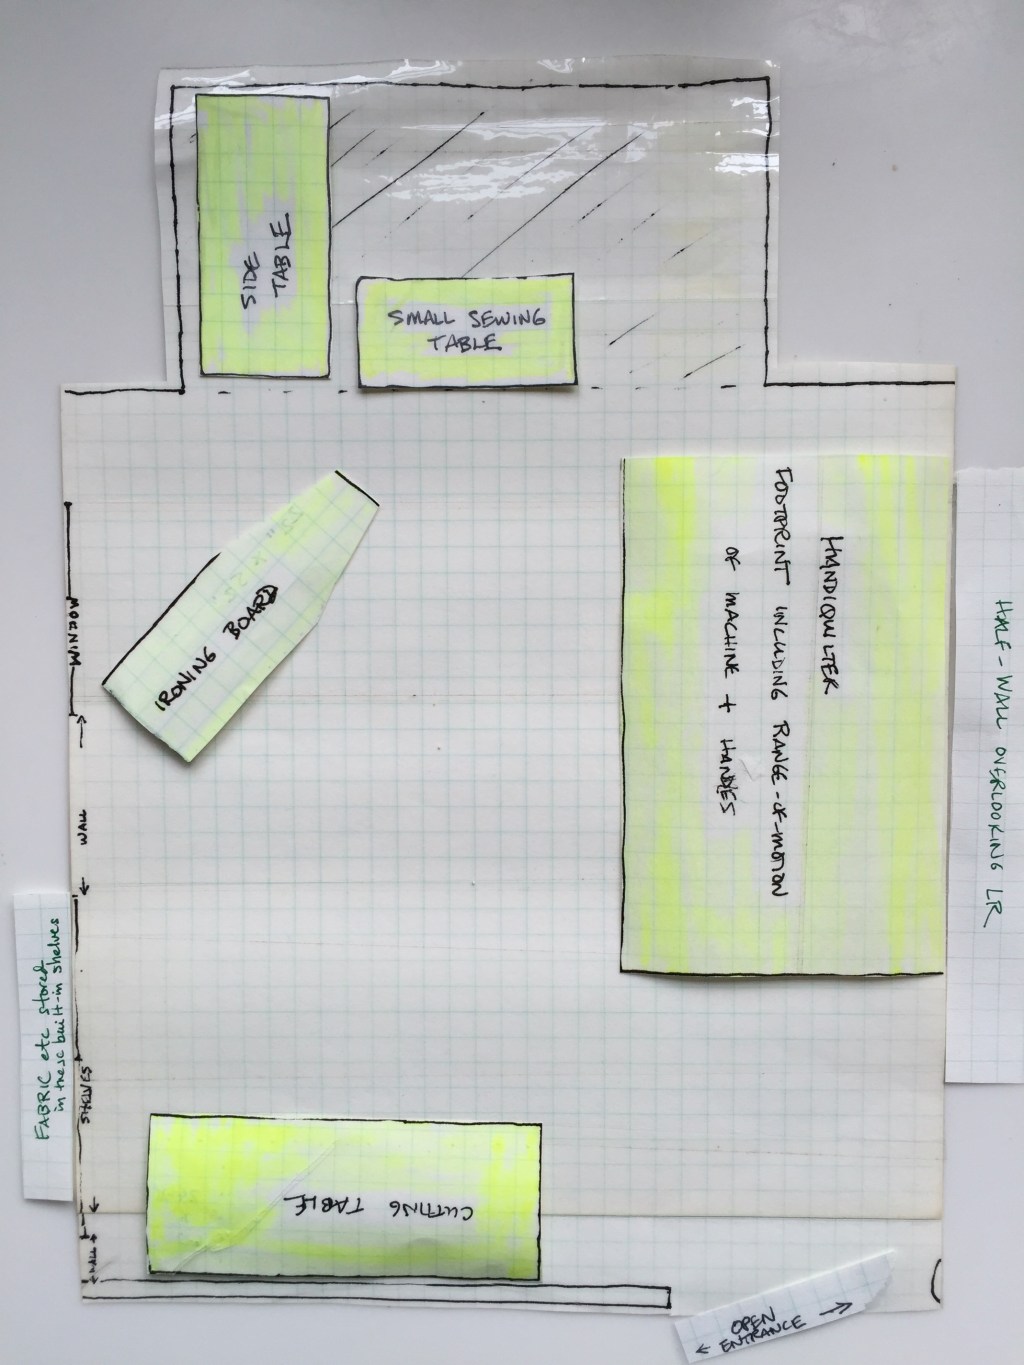 SIDE
TABLE
SMALL SEWING
TABLE
IRONING BOARD
HANDIQUILTER
FOOTPRINT INCLUDING RANGE-OF-MOTION
OF MACHINE + HANDLES
HALF-WALL OVERLOOKING LR
WINDOW
WALL
FABRIC etc stored
in these built-in shelves
SHELVES
WALL
CUTTING TABLE
← OPEN
ENTRANCE →